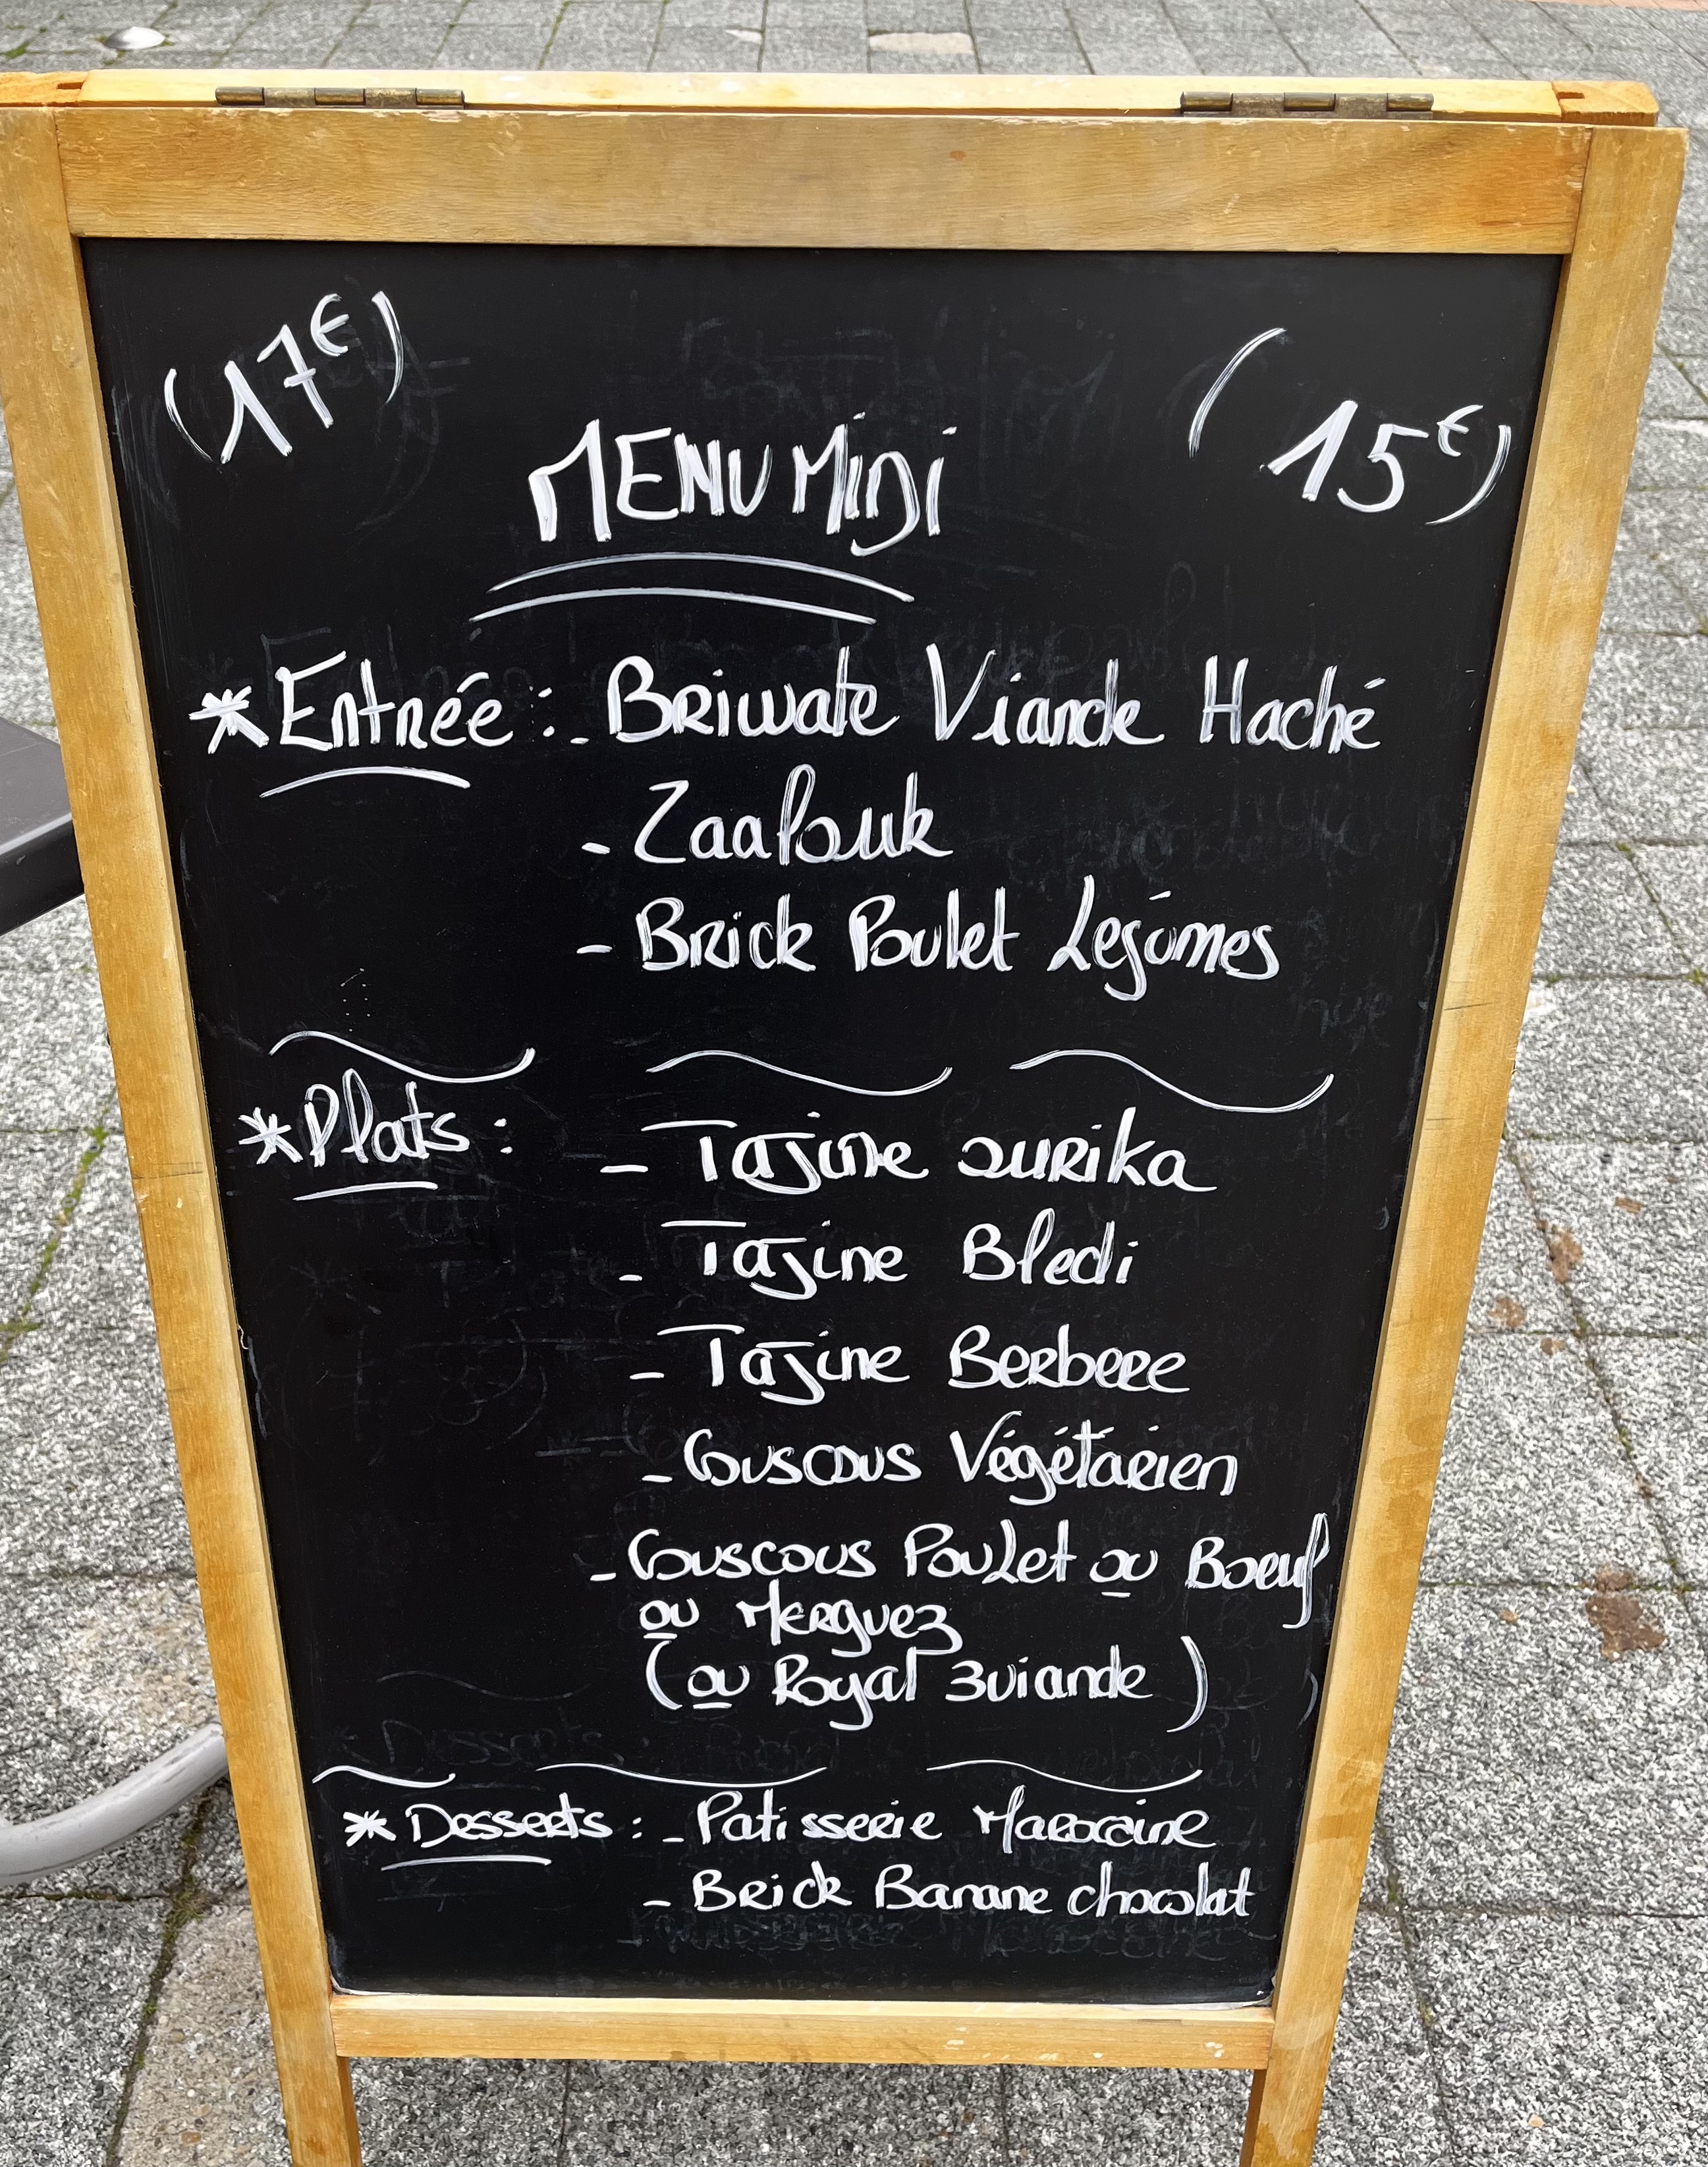 (17€)
(15€)
MENU MiDi
*Entrée : - Briwate Viande Haché
- Zaalouk
- Brick Poulet Legúmes
*Plats :
- Tajine ourika
- Tajine Bledi
- Tajine Berbere
- Couscous Végétarien
- Couscous Poulet ou Boeuf
ou Merguez
(ou Royal 3viande)
*Desserts : - Patisserie Marocaine
- Brick Banane chocolat